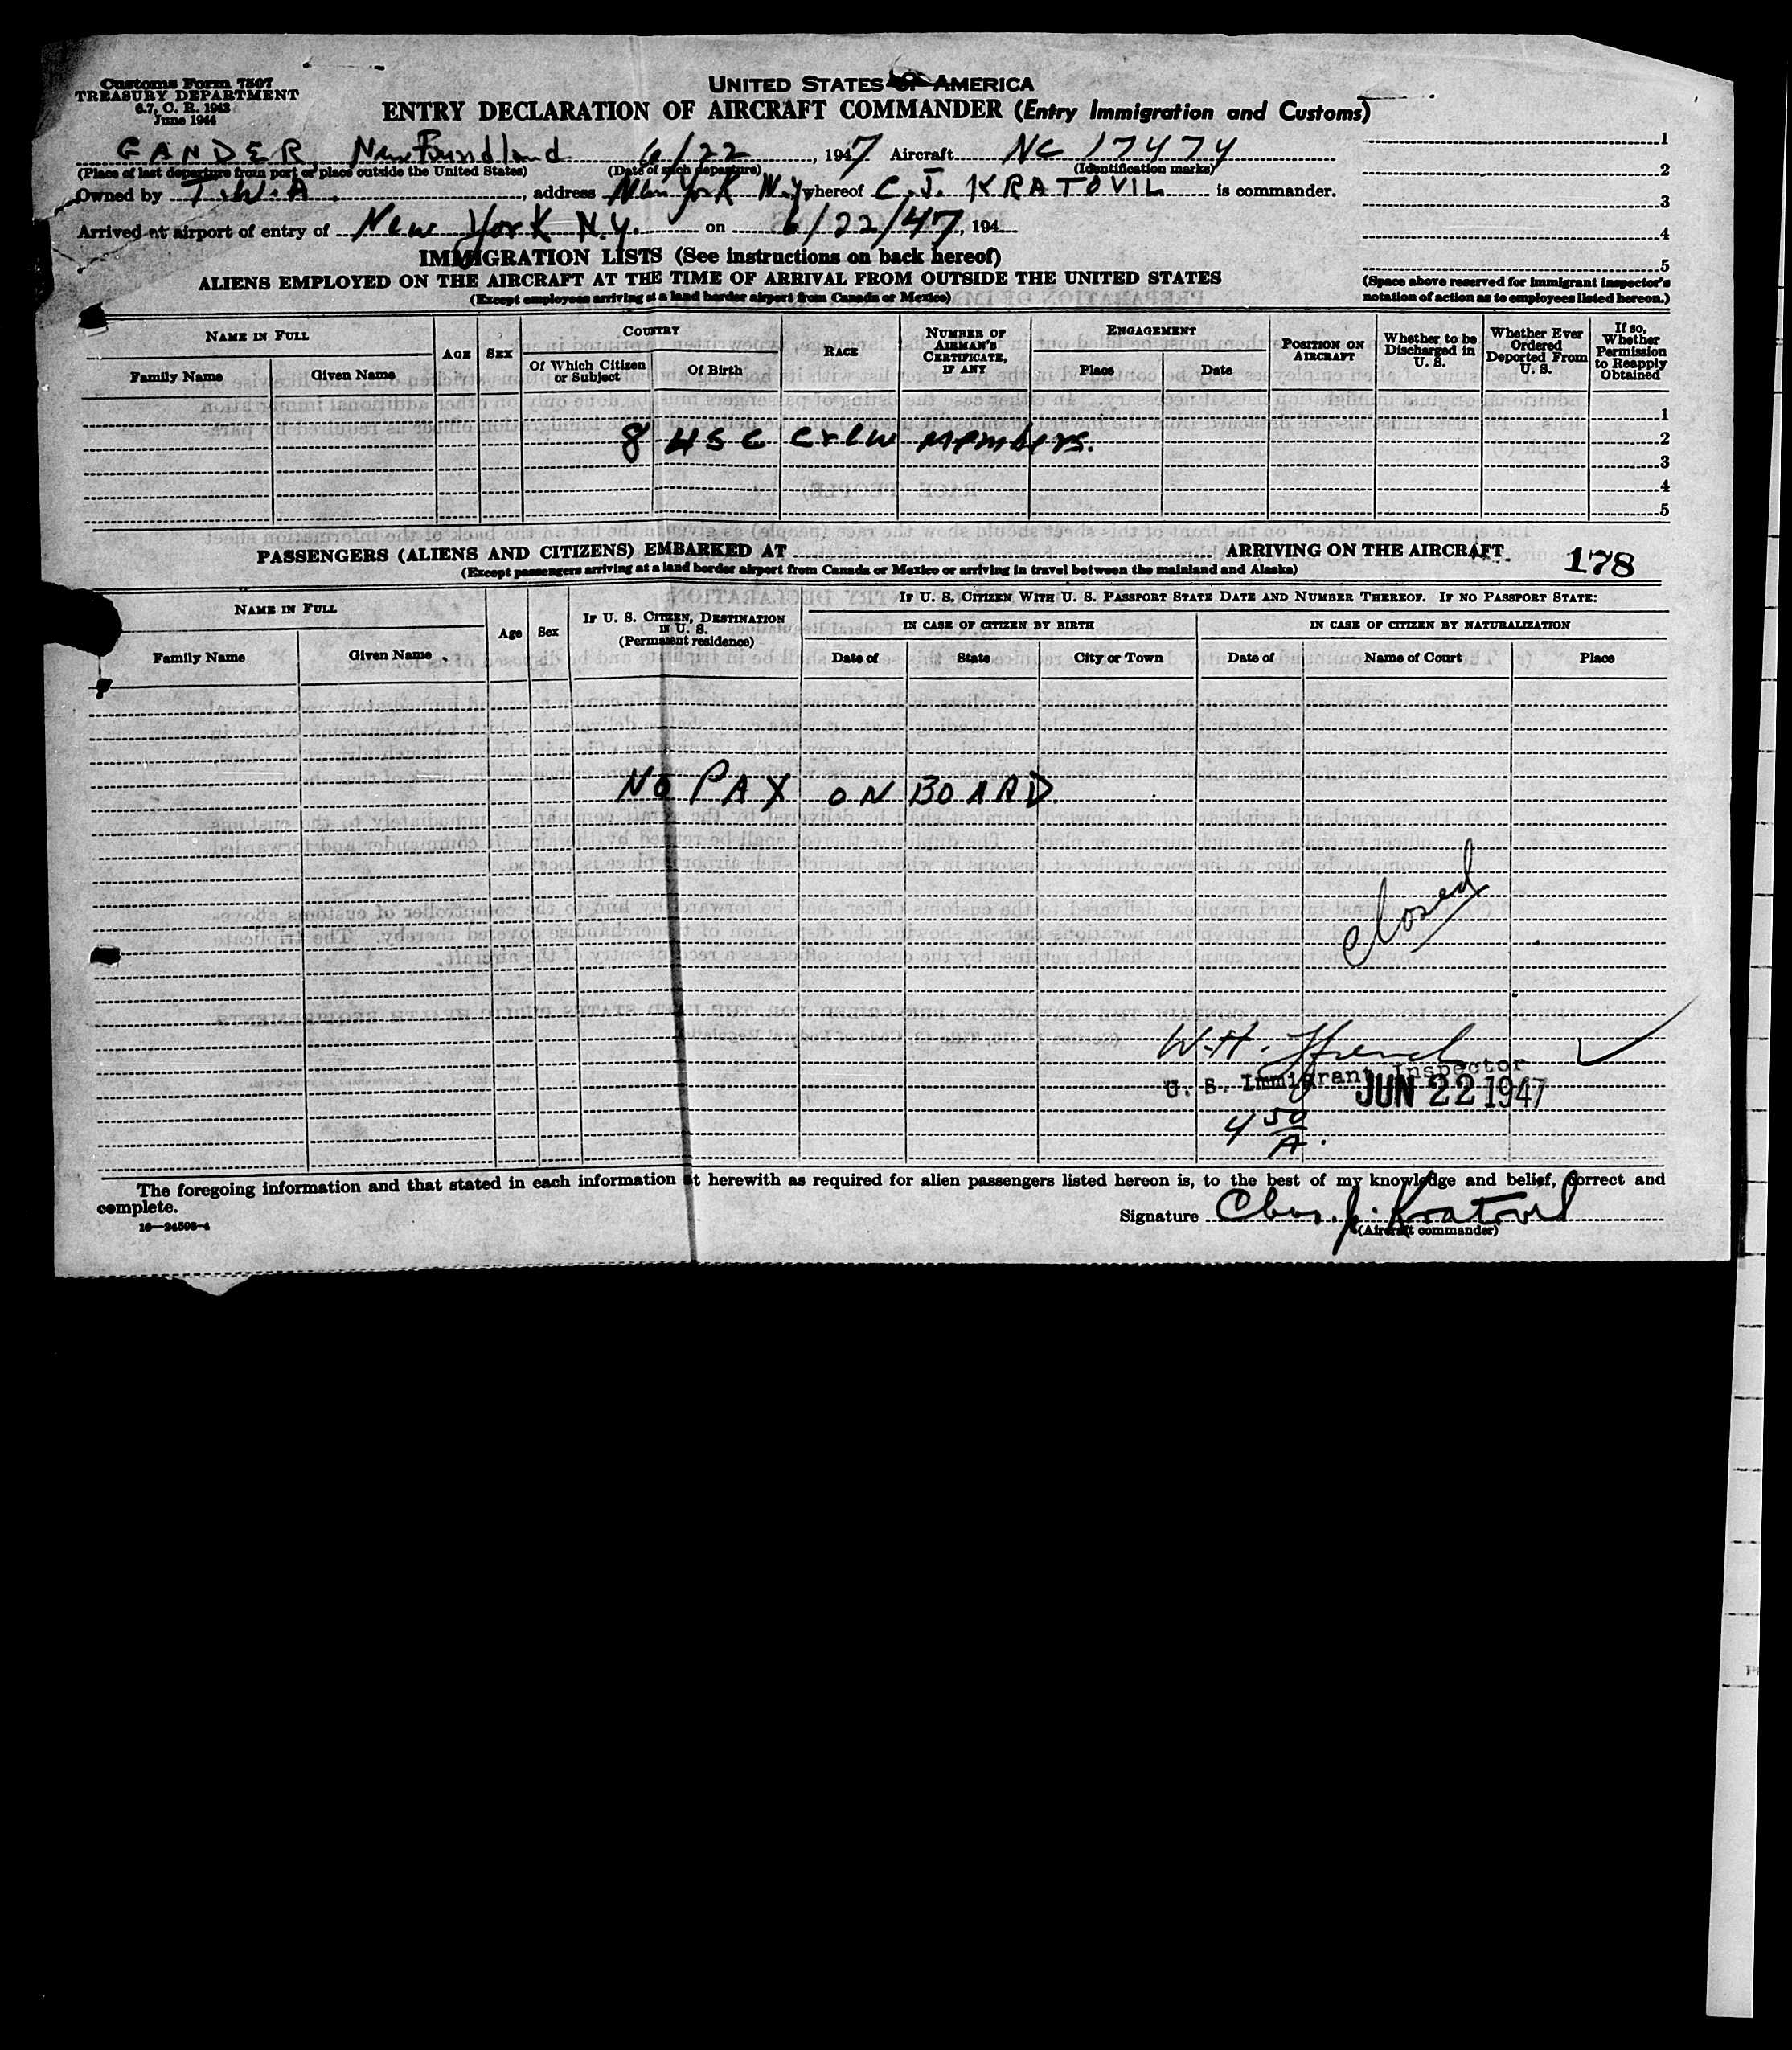 Customs Form 7507
TREASURY DEPARTMENT
6.7, C. R. 1943
June 1944
UNITED STATES OF AMERICA
ENTRY DECLARATION OF AIRCRAFT COMMANDER (Entry Immigration and Customs)
GANDER, NewFoundland 6/22, 1947 Aircraft NC 17474
(Place of last departure from port or place outside the United States) (Date of such departure) (Identification marks)
Owned by T.W.A., address New York N.Y. whereof C.J. KRATOVIL is commander.
Arrived at airport of entry of New York N.Y. on 6/22/47, 194
1
2
3
4
5
(Space above reserved for immigrant inspector's notation of action as to employees listed hereon.)
IMMIGRATION LISTS (See instructions on back hereof)
ALIENS EMPLOYED ON THE AIRCRAFT AT THE TIME OF ARRIVAL FROM OUTSIDE THE UNITED STATES
(Except employees arriving at a land border airport from Canada or Mexico)
NAME IN FULL
Family Name Given Name
AGE SEX
COUNTRY
Of Which Citizen or Subject Of Birth
RACE
NUMBER OF AIRMAN'S CERTIFICATE, IF ANY
ENGAGEMENT
Place Date
POSITION ON AIRCRAFT
Whether to be Discharged in U. S.
Whether Ever Ordered Deported From U. S.
If so, Whether Permission to Reapply Obtained
1
8 USC crew members. 2
3
4
5
PASSENGERS (ALIENS AND CITIZENS) EMBARKED AT ARRIVING ON THE AIRCRAFT 178
(Except passengers arriving at a land border airport from Canada or Mexico or arriving in travel between the mainland and Alaska)
NAME IN FULL
Family Name Given Name
Age Sex
IF U. S. CITIZEN, DESTINATION IN U. S.
(Permanent residence)
IF U. S. CITIZEN WITH U. S. PASSPORT STATE DATE AND NUMBER THEREOF. IF NO PASSPORT STATE:
IN CASE OF CITIZEN BY BIRTH IN CASE OF CITIZEN BY NATURALIZATION
Date of State City or Town Date of Name of Court Place
NO PAX ON BOARD.
closed
W.H. French
U. S. Immigrant Inspector
JUN 22 1947
4 50
A.
The foregoing information and that stated in each information at herewith as required for alien passengers listed hereon is, to the best of my knowledge and belief, correct and
complete.
16—24598-4
Signature Chas. J. Kratovil
(Aircraft commander)